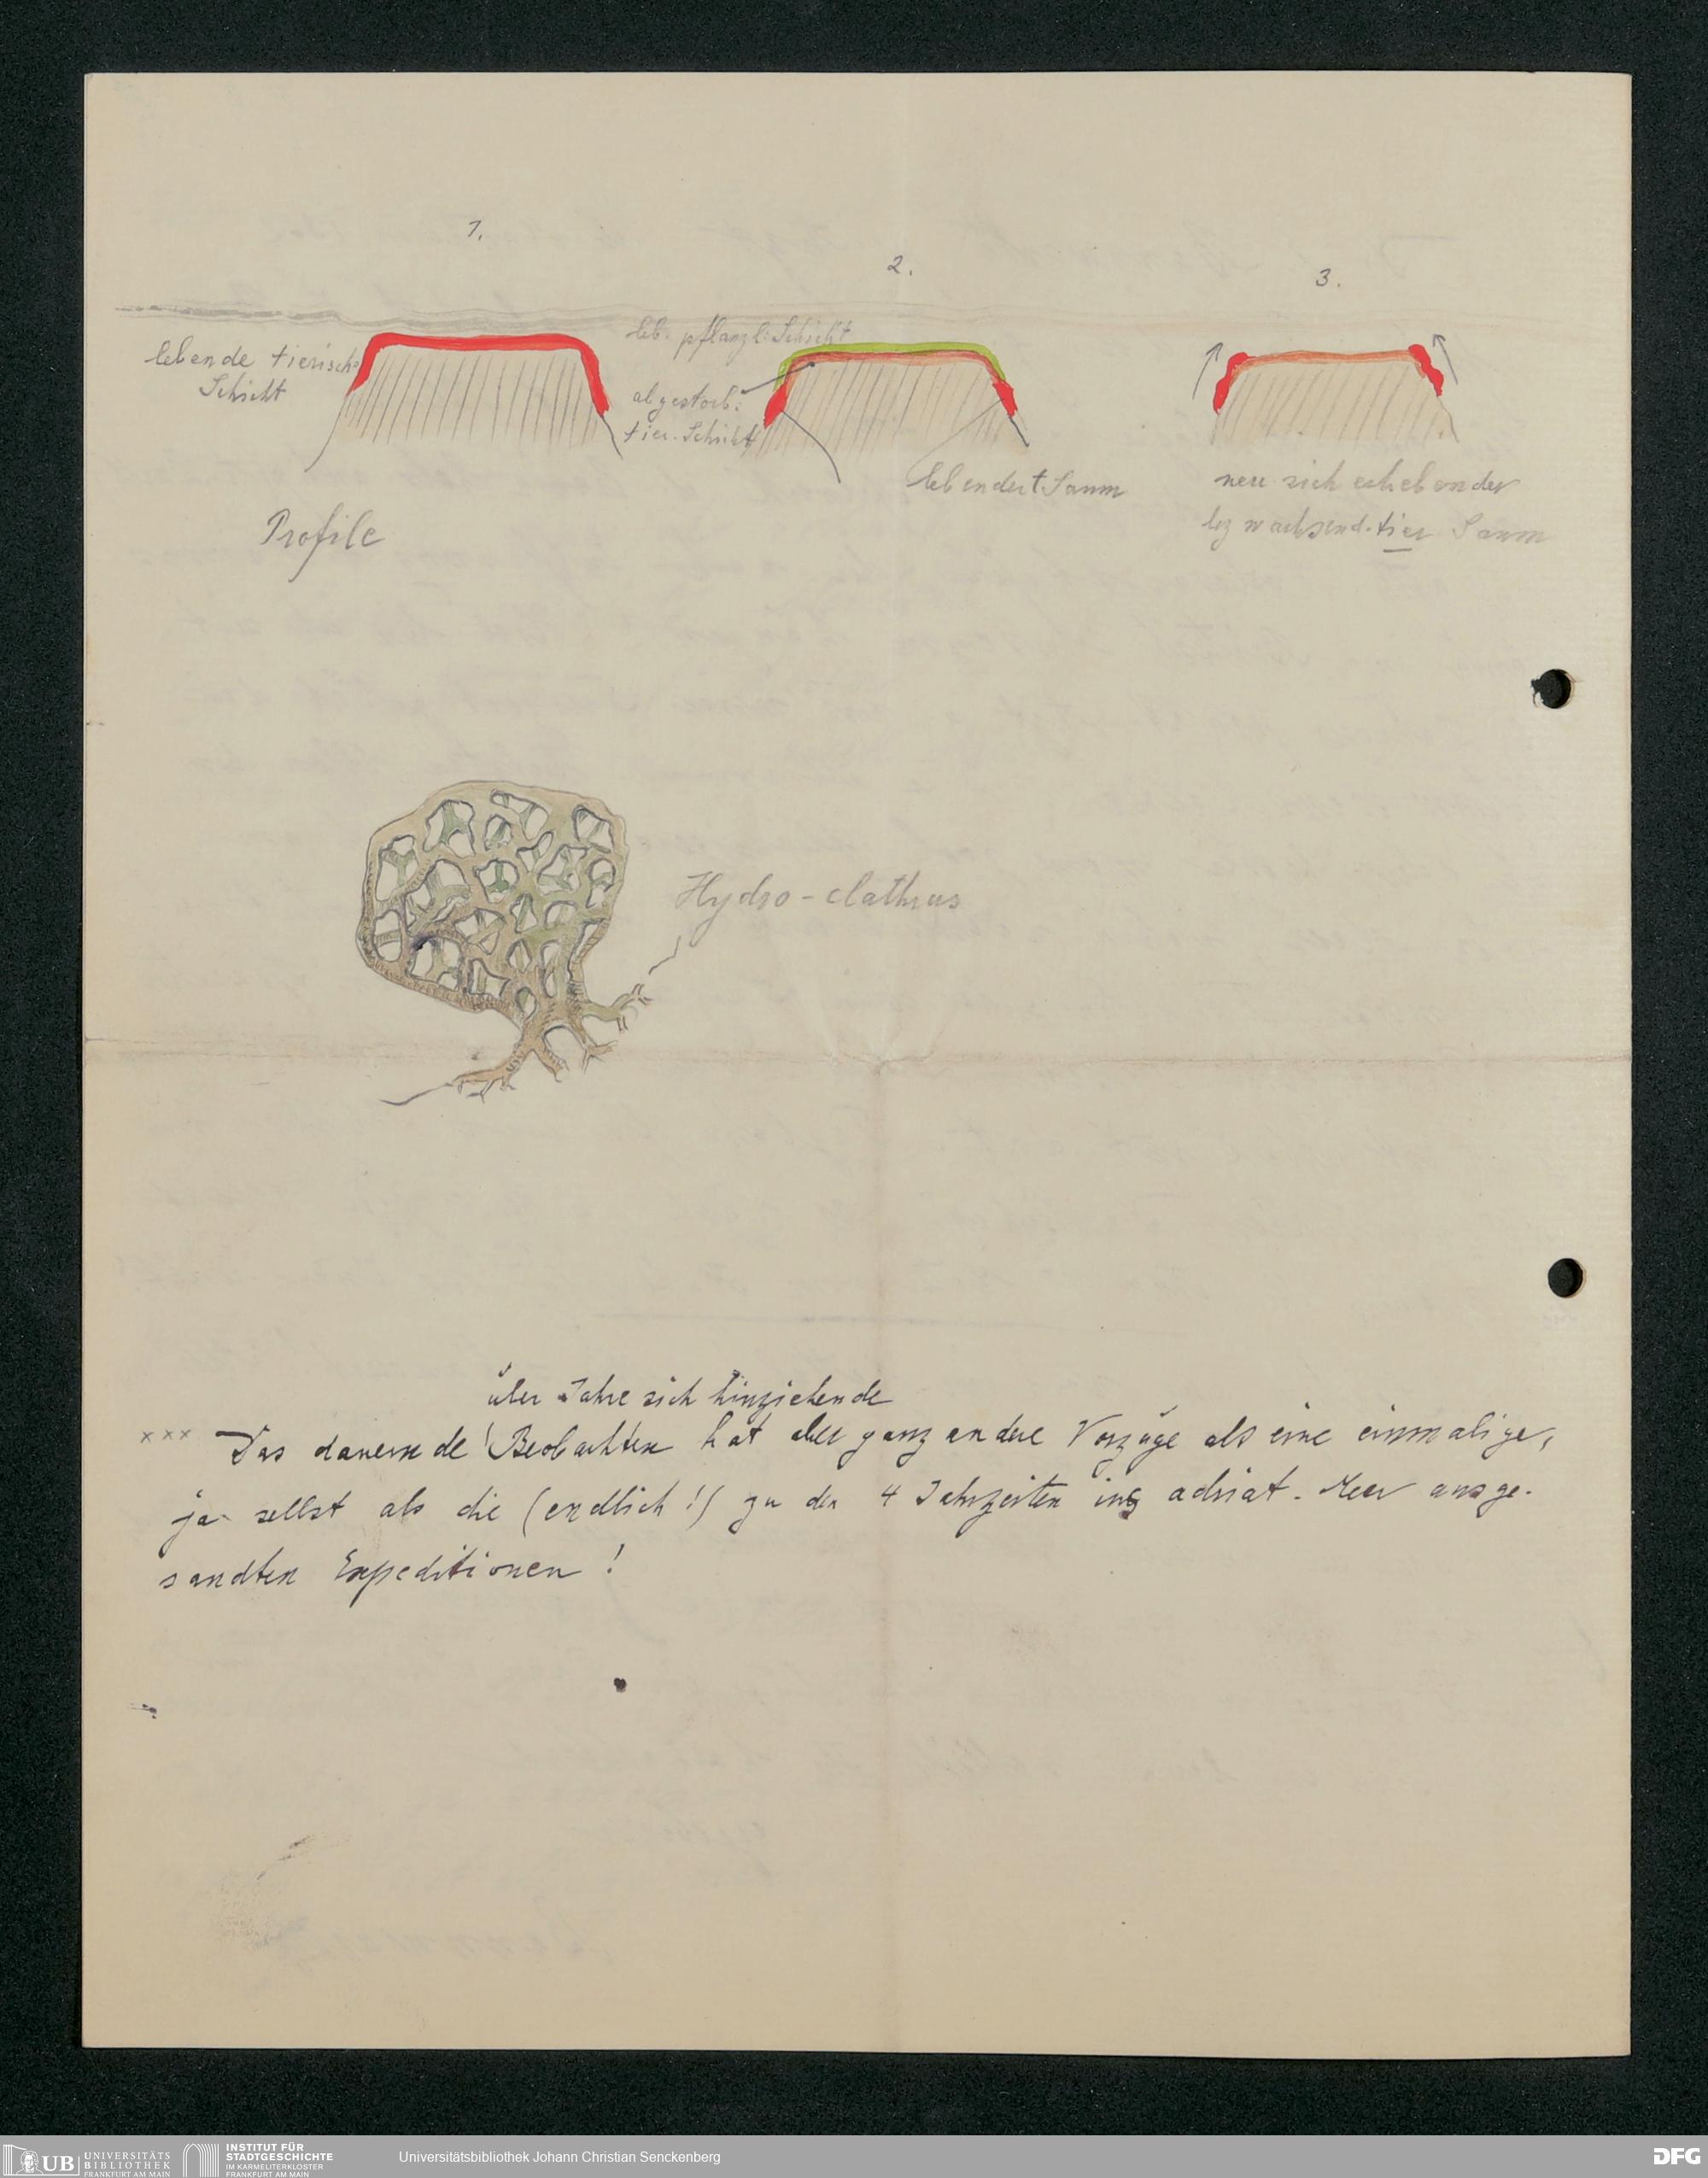 1.
2.
3.
lebende tierische
Schicht
leb. pflanzl. Schicht
abgestorb.
tier. Schicht
lebender t. Saum
neu sich erhebender
bz wachsend. tier Saum
Profile
Hydro-clathrus
über Jahre sich hinziehende
××× Das dauernde Beobachten hat aber ganz andere Vorzüge als eine einmalige,
ja selbst als die (endlich!) zu den 4 Jahrzeiten ins adriat. Meer ausge-
sandten Expeditionen!
UB UNIVERSITÄTS
BIBLIOTHEK
FRANKFURT AM MAIN
INSTITUT FÜR
STADTGESCHICHTE
IM KARMELITERKLOSTER
FRANKFURT AM MAIN
Universitätsbibliothek Johann Christian Senckenberg
DFG